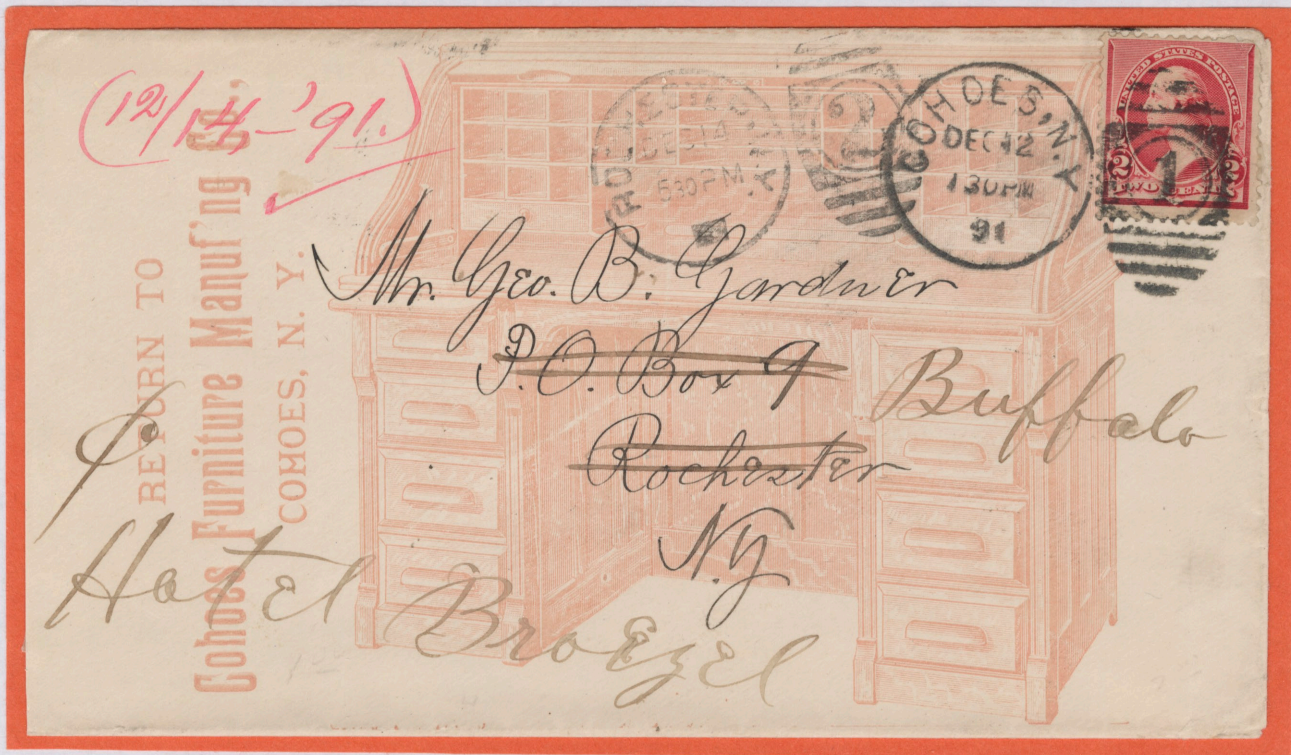 (12/14–'91.)
RETURN TO
Cohoes Furniture Manuf'ng Co.,
COMOES, N. Y.
ROCHESTER
DEC 14
530 PM
2
COHOES, N.Y.
DEC 12
130 PM
91
1
UNITED STATES POSTAGE
2 2
TWO CENTS
Mr. Geo. B. Gardner
P.O. Box 9
Rochester
N.Y
Buffalo
Hotel Broezel